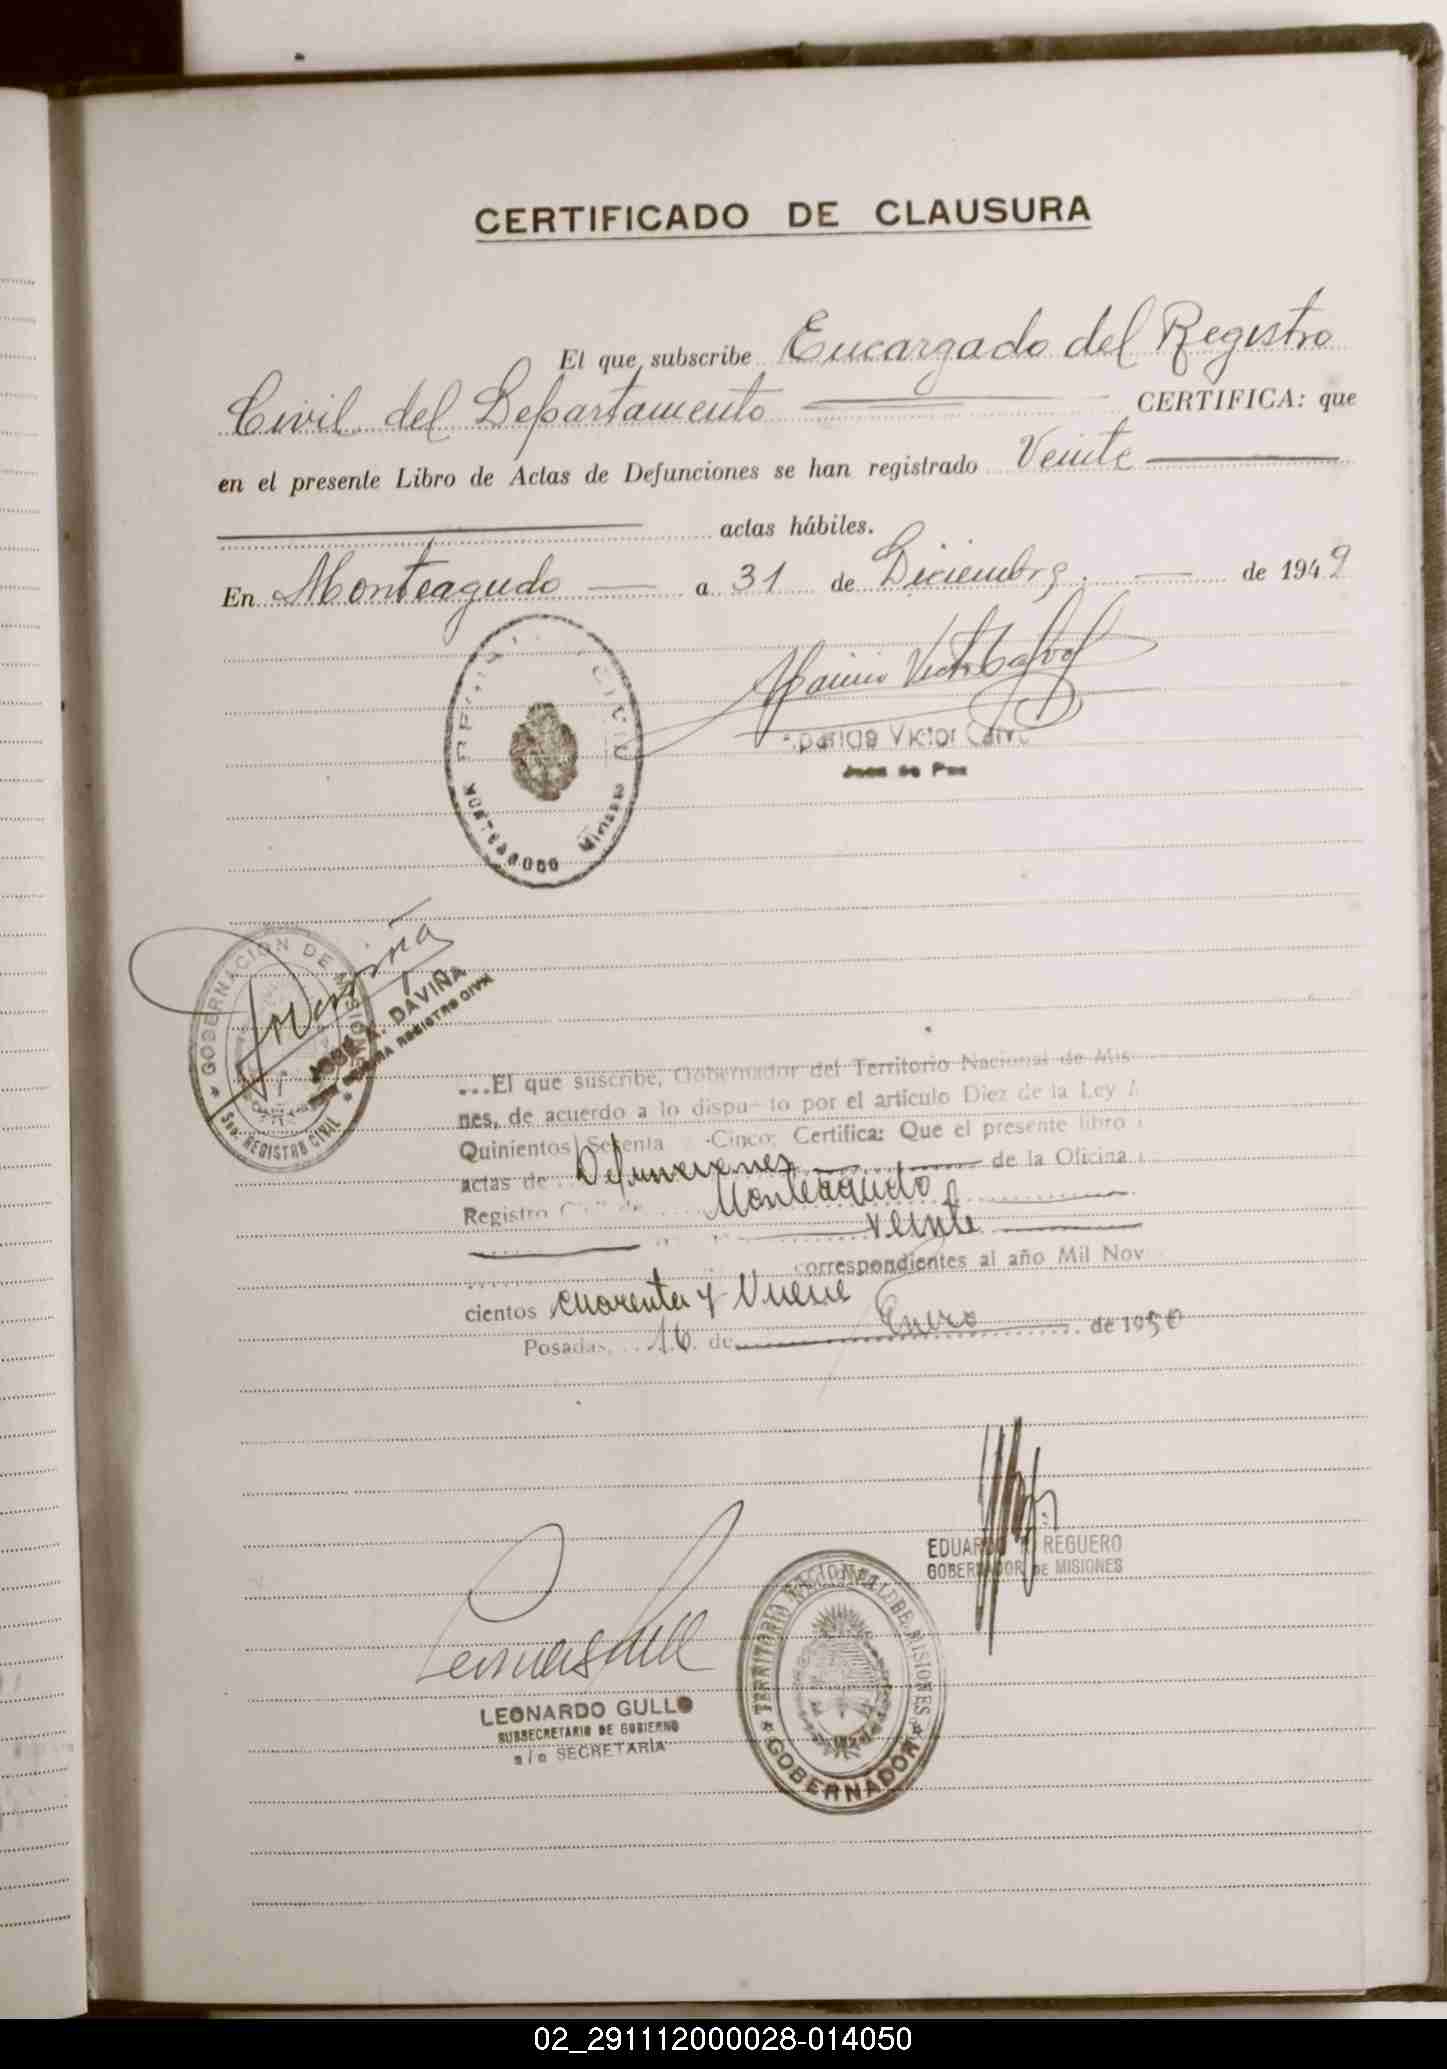 CERTIFICADO DE CLAUSURA
El que subscribe Encargado del Registro
Civil del Departamento CERTIFICA: que
en el presente Libro de Actas de Defunciones se han registrado Veinte
actas hábiles.
En Monteagudo a 31 de Diciembre. de 1949
CIVIL
MONTEAGUDO Misiones
Victor
Juez de Paz
GOBERNACION DE MISIONES
Daviña
JOSE A. DAVIÑA
REGISTRO CIVIL
Sec. REGISTRO CIVIL
...El que suscribe, Gobernador del Territorio Nacional de Mis
nes, de acuerdo a lo dispu to por el artículo Diez de la Ley
Quinientos Setenta Cinco; Certifica: Que el presente libro
actas de Defunciones de la Oficina
Registro Civil de Monteagudo
veinte
correspondientes al año Mil Nov
cientos cuarenta y Nueve
Posadas, 16 de Enero de 1950
EDUARDO REGUERO
GOBERNADOR DE MISIONES
LEONARDO GULLO
SUBSECRETARIO DE GOBIERNO
a/c SECRETARIA
TERRITORIO NACIONAL DE MISIONES
GOBERNADOR
02_291112000028-014050